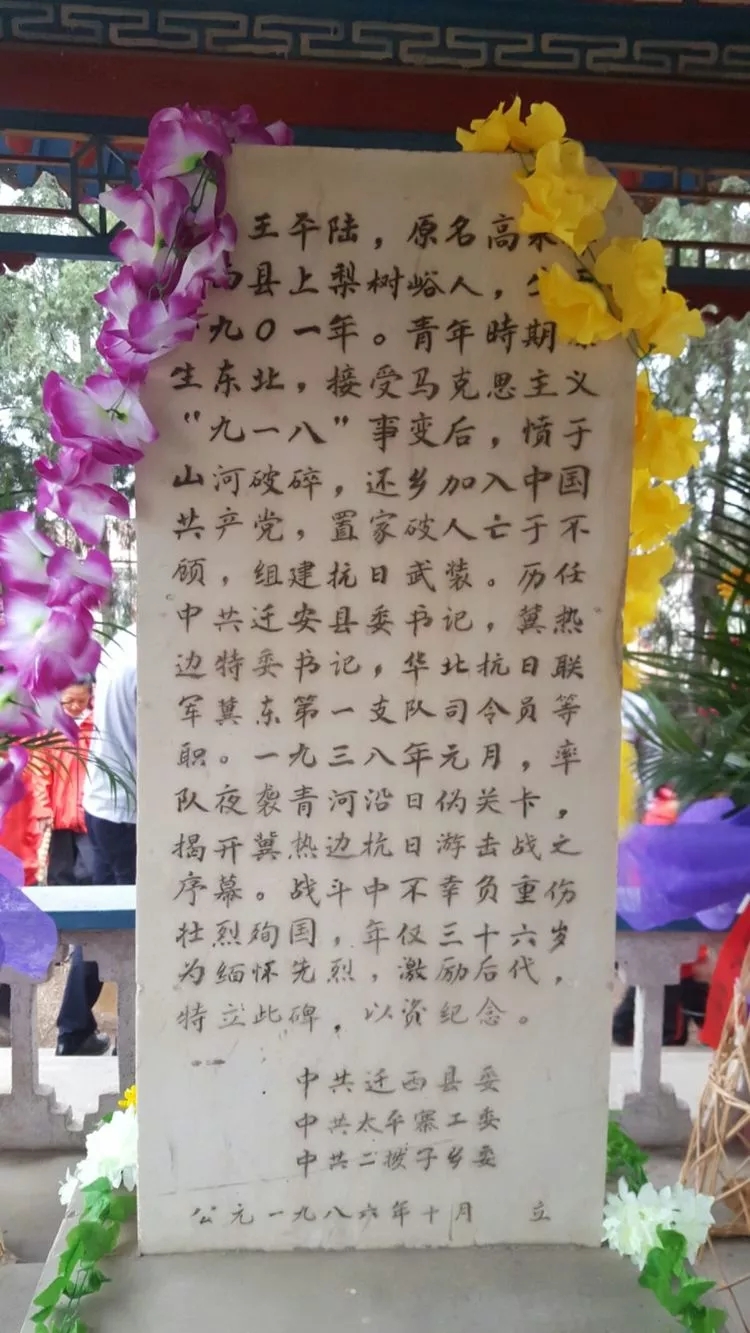 王平陆，原名高
县上梨树峪人，
九〇一年。青年时期
生东北，接受马克思主义
“九一八”事变后，愤于
山河破碎，还乡加入中国
共产党，置家破人亡于不
顾，组建抗日武装。历任
中共迁安县委书记，冀热
边特委书记，华北抗日联
军冀东第一支队司令员等
职。一九三八年元月，率
队夜袭青河沿日伪关卡，
揭开冀热边抗日游击战之
序幕。战斗中不幸负重伤
壮烈殉国，年仅三十六岁
为缅怀先烈，激励后代，
特立此碑，以资纪念。
中共迁西县委
中共太平寨工委
中共二拨子乡委
公元一九八六年十月 立